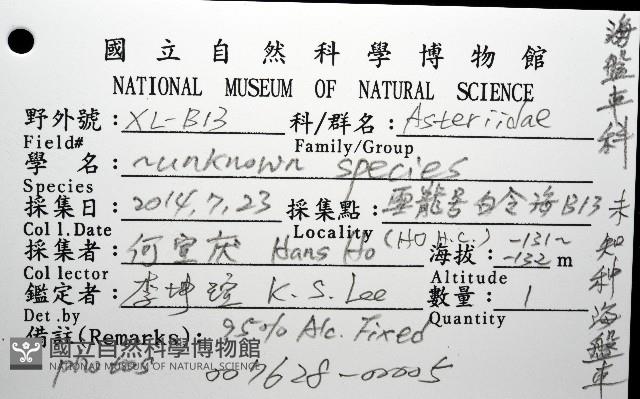 國立自然科學博物館
NATIONAL MUSEUM OF NATURAL SCIENCE
野外號：XL-B13 科/群名：Asteriidae
Field# Family/Group
學 名：~unknown species
Species
採集日：2014,7,23 採集點：雪龍号白令海B13
Coll.Date Locality
採集者：何宣庆 Hans Ho (HO H.C.) 海拔：-131~-132 m
Collector Altitude
鑑定者：李坤瑄 K.S.Lee 數量：1
Det.by Quantity
備註(Remarks)：95% Alc. Fixed
photos 007628-00005
國立自然科學博物館
NATIONAL MUSEUM OF NATURAL SCIENCE
海盤車科 未知种海盤車